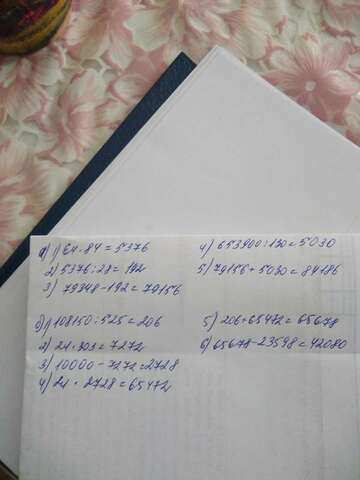 а) 1) 64·84=5376
2) 5376:28=192
3) 79348-192=79156
4) 653900:130=5030
5) 79156+5030=84186
б) 1) 108150:525=206
2) 24·303=7272
3) 10000-7272=2728
4) 24·2728=65472
5) 206+65472=65678
6) 65678-23598=42080